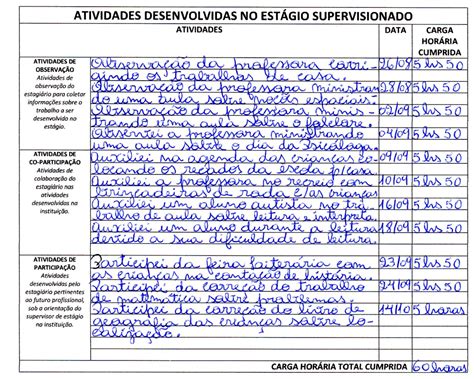 ATIVIDADES DESENVOLVIDAS NO ESTÁGIO SUPERVISIONADO
ATIVIDADES DATA CARGA HORÁRIA CUMPRIDA
ATIVIDADES DE OBSERVAÇÃO
Atividades de observação do estagiário para coletar informações sobre o trabalho a ser desenvolvido no estágio.
Observação da professora corri- 26/08 5 hs 50
gindo os trabalhos de casa.
Observação da professora ministran 28/08 5 hs 50
do uma aula sobre noções espaciais.
Observação da professora minis- 02/09 5 hs 50
trando uma aula sobre o folclore.
Observei a professora ministrando 04/09 5 hs 50
uma aula sobre o dia da
ATIVIDADES DE CO-PARTICIPAÇÃO
Atividades de colaboração do estagiário nas atividades desenvolvidas na instituição.
Auxiliei na agenda das crianças co- 09/09 5 hs 50
locando os recados da escola p/casa.
Auxiliei a professora no recreio com 10/09 5 hs 50
brincadeiras de roda c/as crianças
Auxiliei um aluno autista no tra 16/09 5 hs 50
balho de aula sobre leitura e interpreta.
Auxiliei um aluno durante a leitura 18/09 5 hs 50
devido a sua dificuldade de leitura.
ATIVIDADES DE PARTICIPAÇÃO
Atividades desenvolvidas pelo estagiário pertinentes ao futuro profissional, sob a orientação do supervisor de estágio na instituição.
Participei da feira literária com 23/09 5 hs 50
as crianças na contação de história.
Participei da correção do trabalho 24/09 5 hs 50
de matemática sobre problemas.
Participei da correção do livro de 14/10 5 horas
geografia das crianças sobre lo-
calização.
CARGA HORÁRIA TOTAL CUMPRIDA 60 horas